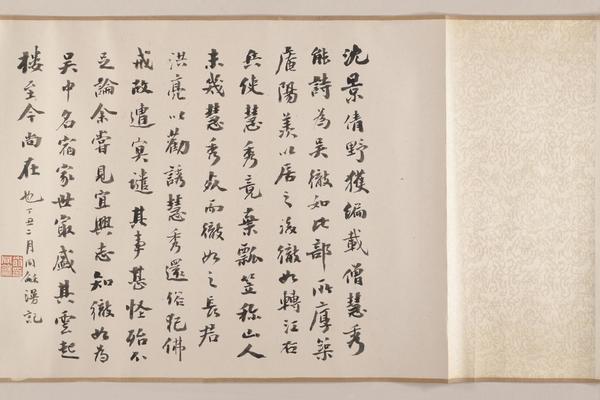 沈景倩野獲編載僧慧秀
能詩為吳徹如比部所厚築
庵陽羨以居之後徹如轉江右
兵使慧秀竟棄瓢笠稱山人
未幾慧秀死而徹如之長君
洪亮以勸誘慧秀還俗犯佛
戒故遭冥譴其事甚怪殆不
足論余嘗見宜興志知徹如為
吳中名宿家世最盛其雲起
樓至今尚在也丁丑二月同龢漫記